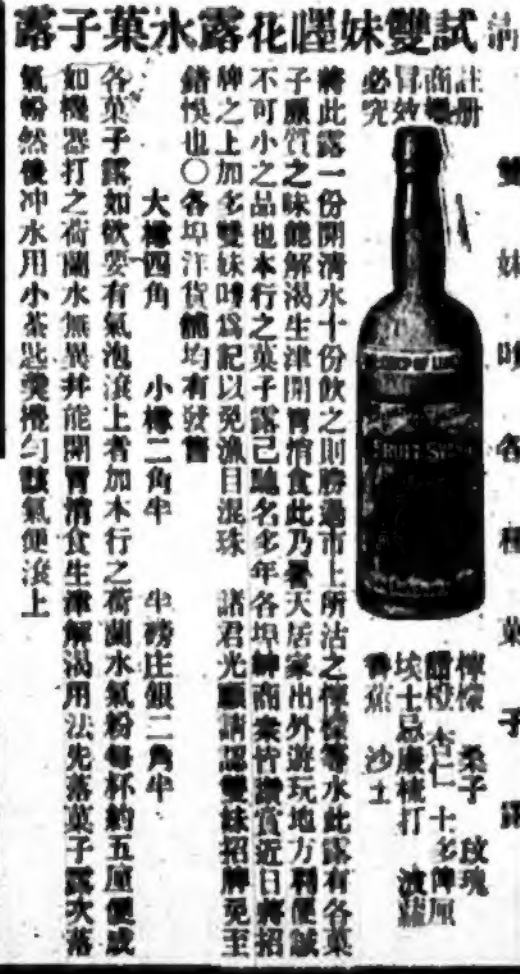 試雙妹嚜花露水菓子露
雙妹嘜各種菓子露
註册
商標
冒效
必究
FRUIT SYRUP
檸檬 桑子 玫瑰
甜橙 杏仁 士多啤厘
埃士忌廉梳打 波蘿
香蕉 沙士
將此露一份開清水十份飲之則勝過市上所沽之檸檬等水此露有各菓
子原質之味能解渴生津開胃消食此乃暑天居家出外遊玩地方利便誠
不可小之品也本行之菓子露已馳名多年各埠紳商衆皆讚賞近日將招
牌之上加多雙妹嘜爲記以免漁目混珠 諸君光顧請認雙妹招牌免至
錯悞也○各埠洋貨舖均有發售
大樽四角 小樽二角半 半磅庄銀二角半
各菓子露如欲要有氣泡滾上者加本行之荷蘭水氣粉每杯約五厘便成
如機器打之荷蘭水無異并能開胃消食生津解渴用法先落菓子露次落
氣粉然後冲水用小茶匙羹攪勻驗氣便滾上